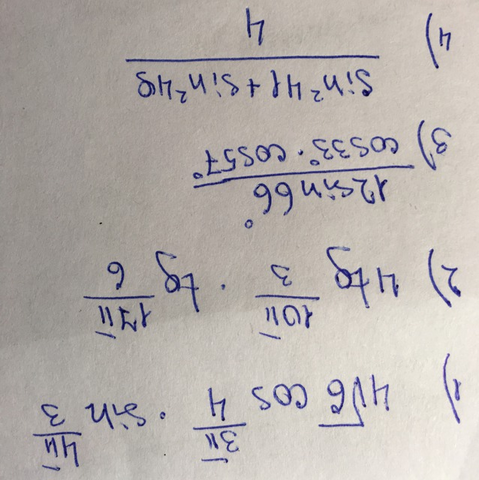 1) 4√6 cos 3π/4 · sin 4π/3
2) 4tg 10π/3 · tg 17π/6
3) 12 sin 66° / cos33° · cos57°
4) sin²41 + sin²49 / 4